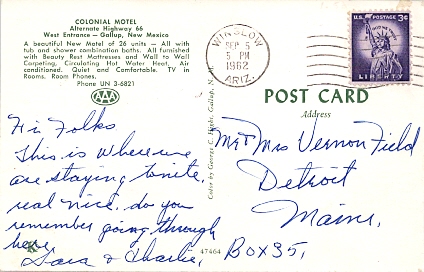 COLONIAL MOTEL
Alternate Highway 66
West Entrance - Gallup, New Mexico
A beautiful New Motel of 26 units — All with
tub and shower combination baths. All furnished
with Beauty Rest Mattresses and Wall to Wall
Carpeting, Circulating Hot Water Heat, Air
conditioned. Quiet and Comfortable. TV in
Rooms. Room Phones.
Phone UN 3-6821
AAA
Hi Folks
This is where we
are staying tonite.
real nice. do you
remember going through
here
Sara & Charlie,
Color by George C. Hight, Gallup, N.M.
47464
WINSLOW
SEP 5
5 PM
1962
ARIZ.
U.S. POSTAGE 3¢
IN GOD WE TRUST
LIBERTY
POST CARD
Address
Mr & Mrs Vernon Field
Detroit
Maine,
Box 35,